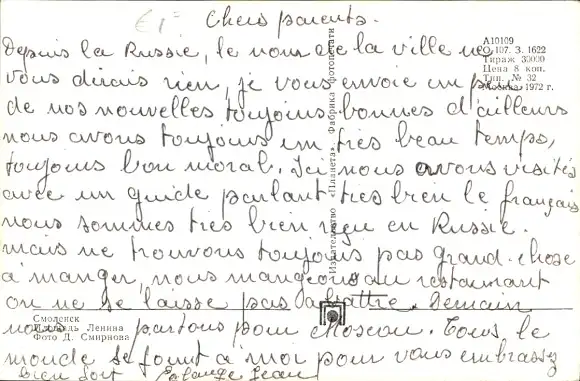 Chers parents.
Depuis la Russie, le nom de la ville ne
vous dirais rien, je vous envoie un peu
de nos nouvelles toujours bonnes d'ailleurs
nous avons toujours un très beau temps,
toujours bon moral. Ici nous avons visités
avec un guide parlant très bien le français
nous sommes très bien reçu en Russie.
mais ne trouvons toujours pas grand-chose
à manger, nous mangeons au restaurant
on ne se laisse pas abattre. Demain
nous partons pour Moscou. Tous le
monde se joint à moi pour vous embrassez
bien fort Jean
А10109
О 107. З. 1622
Тираж 30000
Цена 8 коп.
Тип. № 32
Москва 1972 г.
Издательство «Планета». Фабрика фотопечати
Смоленск
Площадь Ленина
Фото Д. Смирнова